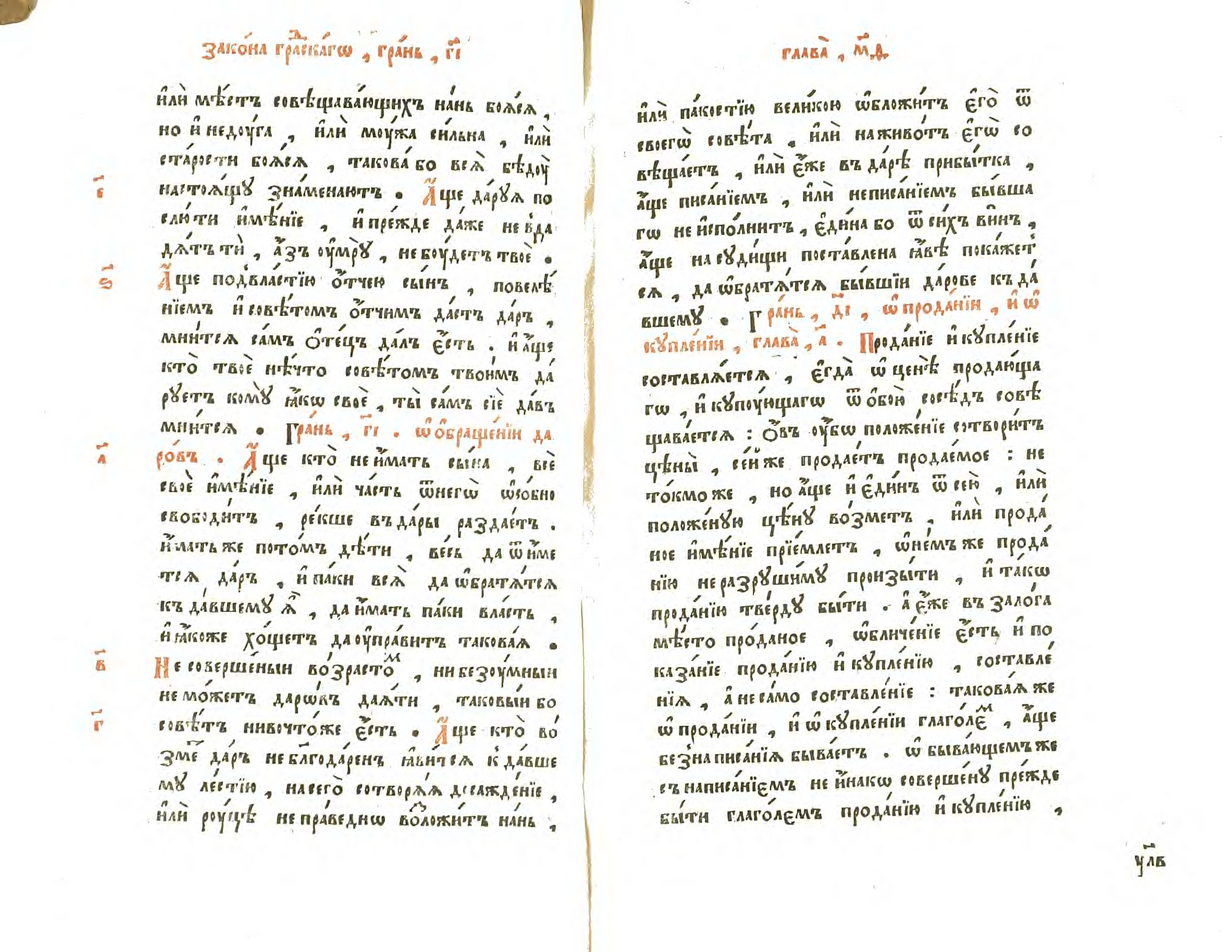 Зако́на гра́дскагѡ , гра́нь , г҃і
и҆лѝ мѣ́стъ совѣщава́ющихъ на́нь боѧ́сѧ ,
но и҆ недꙋ́га , и҆лѝ мꙋ́жа си́льна , и҆лѝ
ста́рости боѧ́сѧ , такова́ бо всѧ̀ бѣдꙋ̀
настоѧ́щꙋ зна́менаютъ . А҆́ще да́рꙋѧ по
слю́ти и҆мѣ́нїе , и҆ пре́жде да́же не вда
дѧ́тъ тѝ , а҆́зъ ᲂу҆мрꙋ̀ , не бꙋ́детъ твоѐ .
А҆́ще под̾вла́стїю ѻ҆́тчею сы́нъ , повелѣ́
нїемъ и҆ совѣ́томъ ѻ҆́тчимъ да́стъ да́ръ ,
мни́тсѧ са́мъ ѻ҆те́цъ да́лъ є҆́сть . и҆ а҆́ще
кто̀ твоѐ нѣ́что совѣ́томъ твои́мъ да́
рꙋетъ комꙋ̀ ꙗ҆́кѡ своѐ , ты̀ са́мъ сїѐ да́въ
мни́тсѧ . Гра́нь , г҃і . ѡ҆ ѡ҆браще́нїи да
ро́въ . А҆́ще кто̀ не и҆́мать сы́на , всѐ
своѐ и҆мѣ́нїе , и҆лѝ ча́сть ѿ негѡ̀ ѡ҆со́бно
свободи́тъ , ре́кше въ да́ры раздае́тъ .
и҆́мать же пото́мъ дѣ́ти , ве́сь да ѿи́ме
тсѧ да́ръ , и҆ па́ки всѧ̀ да ѡ҆братѧ́тсѧ
къ да́вшемꙋ ѧ҆̀ , да и҆́мать па́ки вла́сть ,
и҆ ꙗ҆́коже хо́щетъ да ᲂу҆пра́витъ такова́ѧ .
Не соверше́ныи во́зрастомъ , ни безꙋ́мныи
не мо́жетъ даро́въ даѧ́ти , таковы́и бо
совѣ́тъ ничто́же є҆́сть . А҆́ще кто̀ во́
змє да́ръ не бл҃года́ренъ ꙗ҆ви́тсѧ к̾ да́вше
мꙋ ле́стїю , на сего̀ сотворѧ́ѧ досажде́нїе ,
и҆лѝ рꙋ́цѣ не пра́веднѡ во́ложитъ на́нь ,
є҃
ѕ҃
а҃
в҃
г҃
глава̀ , м҃д
и҆лѝ па́костїю вели́кою ѡ҆бложи́тъ є҆го̀ ѿ
своегѡ̀ совѣ́та , и҆лѝ на живо́тъ є҆гѡ̀ со
вѣща́етъ , и҆лѝ є҆́же въ да́рѣ прибы́тка ,
а҆́ще писа́нїемъ , и҆лѝ не писа́нїемъ бы́вша
гѡ не и҆спо́лнитъ , є҆ди́на бо ѿ си́хъ ви́нъ ,
а҆́ще на сꙋди́щи поста́влена ꙗ҆́вѣ пока́жет
сѧ , да ѡ҆братѧ́тсѧ бы́вшїи да́рове къ да́
вшемꙋ . Гра́нь , д҃і , ѡ҆ прода́нїи , и҆ ѡ҆
кꙋпле́нїи , глава̀ , а҃ . Прода́нїе и҆ кꙋпле́нїе
составлѧ́етсѧ , є҆гда̀ ѡ҆ цѣнѣ̀ продаю́ща
гѡ , и҆ кꙋпꙋ́ющагѡ ѿ ѻ҆бою̀ сосѣ́дъ совѣ
щава́етсѧ : ѻ҆́въ ᲂу҆́бѡ положе́нїе сотвори́тъ
цѣны̀ , се́й же продае́тъ продае́мое : не
то́кмо же , но а҆́ще и҆ є҆ди́нъ ѿ сею̀ , и҆лѝ
положе́нꙋю цѣ́нꙋ во́зметъ , и҆лѝ прода́
ное и҆мѣ́нїе прїе́млетъ , ѡ҆ не́мъ же прода́
нїю не разрꙋ́шимꙋ произы́ти , и҆ та́кѡ
прода́нїю тве́рдꙋ бы́ти . а҆ є҆́же въ зало́га
мѣ́сто про́даное , ѡ҆бличе́нїе є҆́сть и҆ по
каза́нїе прода́нїю и҆ кꙋпле́нїю , составле́
нїѧ , а҆ не са́мо составле́нїе : такова́ѧ же
ѡ҆ прода́нїи , и҆ ѡ҆ кꙋпле́нїи глаго́лемъ , а҆́ще
без̾ написа́нїѧ быва́етъ . ѡ҆ быва́ющемъ же
съ написа́нїемъ не и҆на́кѡ соверше́нꙋ пре́жде
бы́ти глаго́лемъ прода́нїю и҆ кꙋпле́нїю ,
ꙋ҃лв